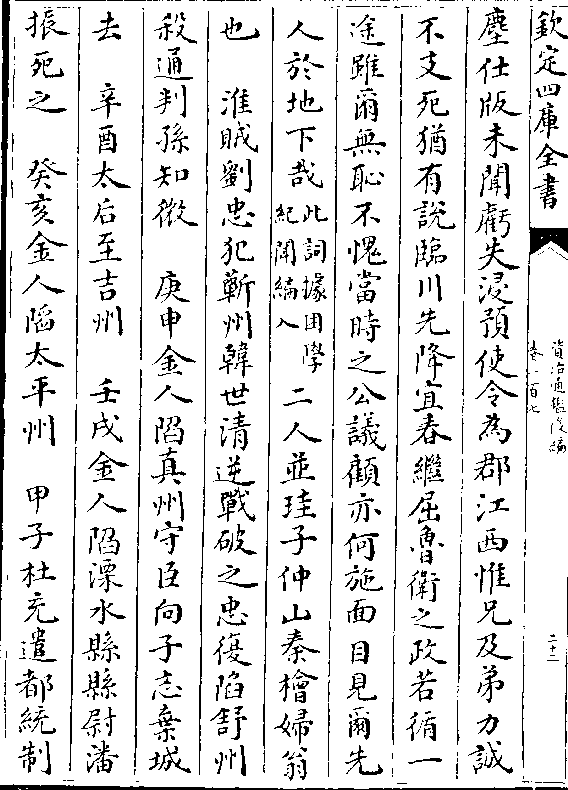 欽定四庫全書
資治通鑑後編
卷一百七
二十二
塵仕版未聞虧失浸預使令為郡江西惟兄及弟力誠
不支死猶有說臨川先降宜春繼屈魯衛之政若循一
途雖爾無恥不愧當時之公議顧亦何施面目見爾先
人於地下哉此詞據困學紀聞編入二人並珪子仲山秦檜婦翁
也　淮賊劉忠犯蘄州韓世清逆戰破之忠復陷舒州
殺通判孫知微　庚申金人陷真州守臣向子忞棄城
去　辛酉太后至吉州　壬戌金人陷溧水縣縣尉潘
振死之　癸亥金人陷太平州　甲子杜充遣都統制